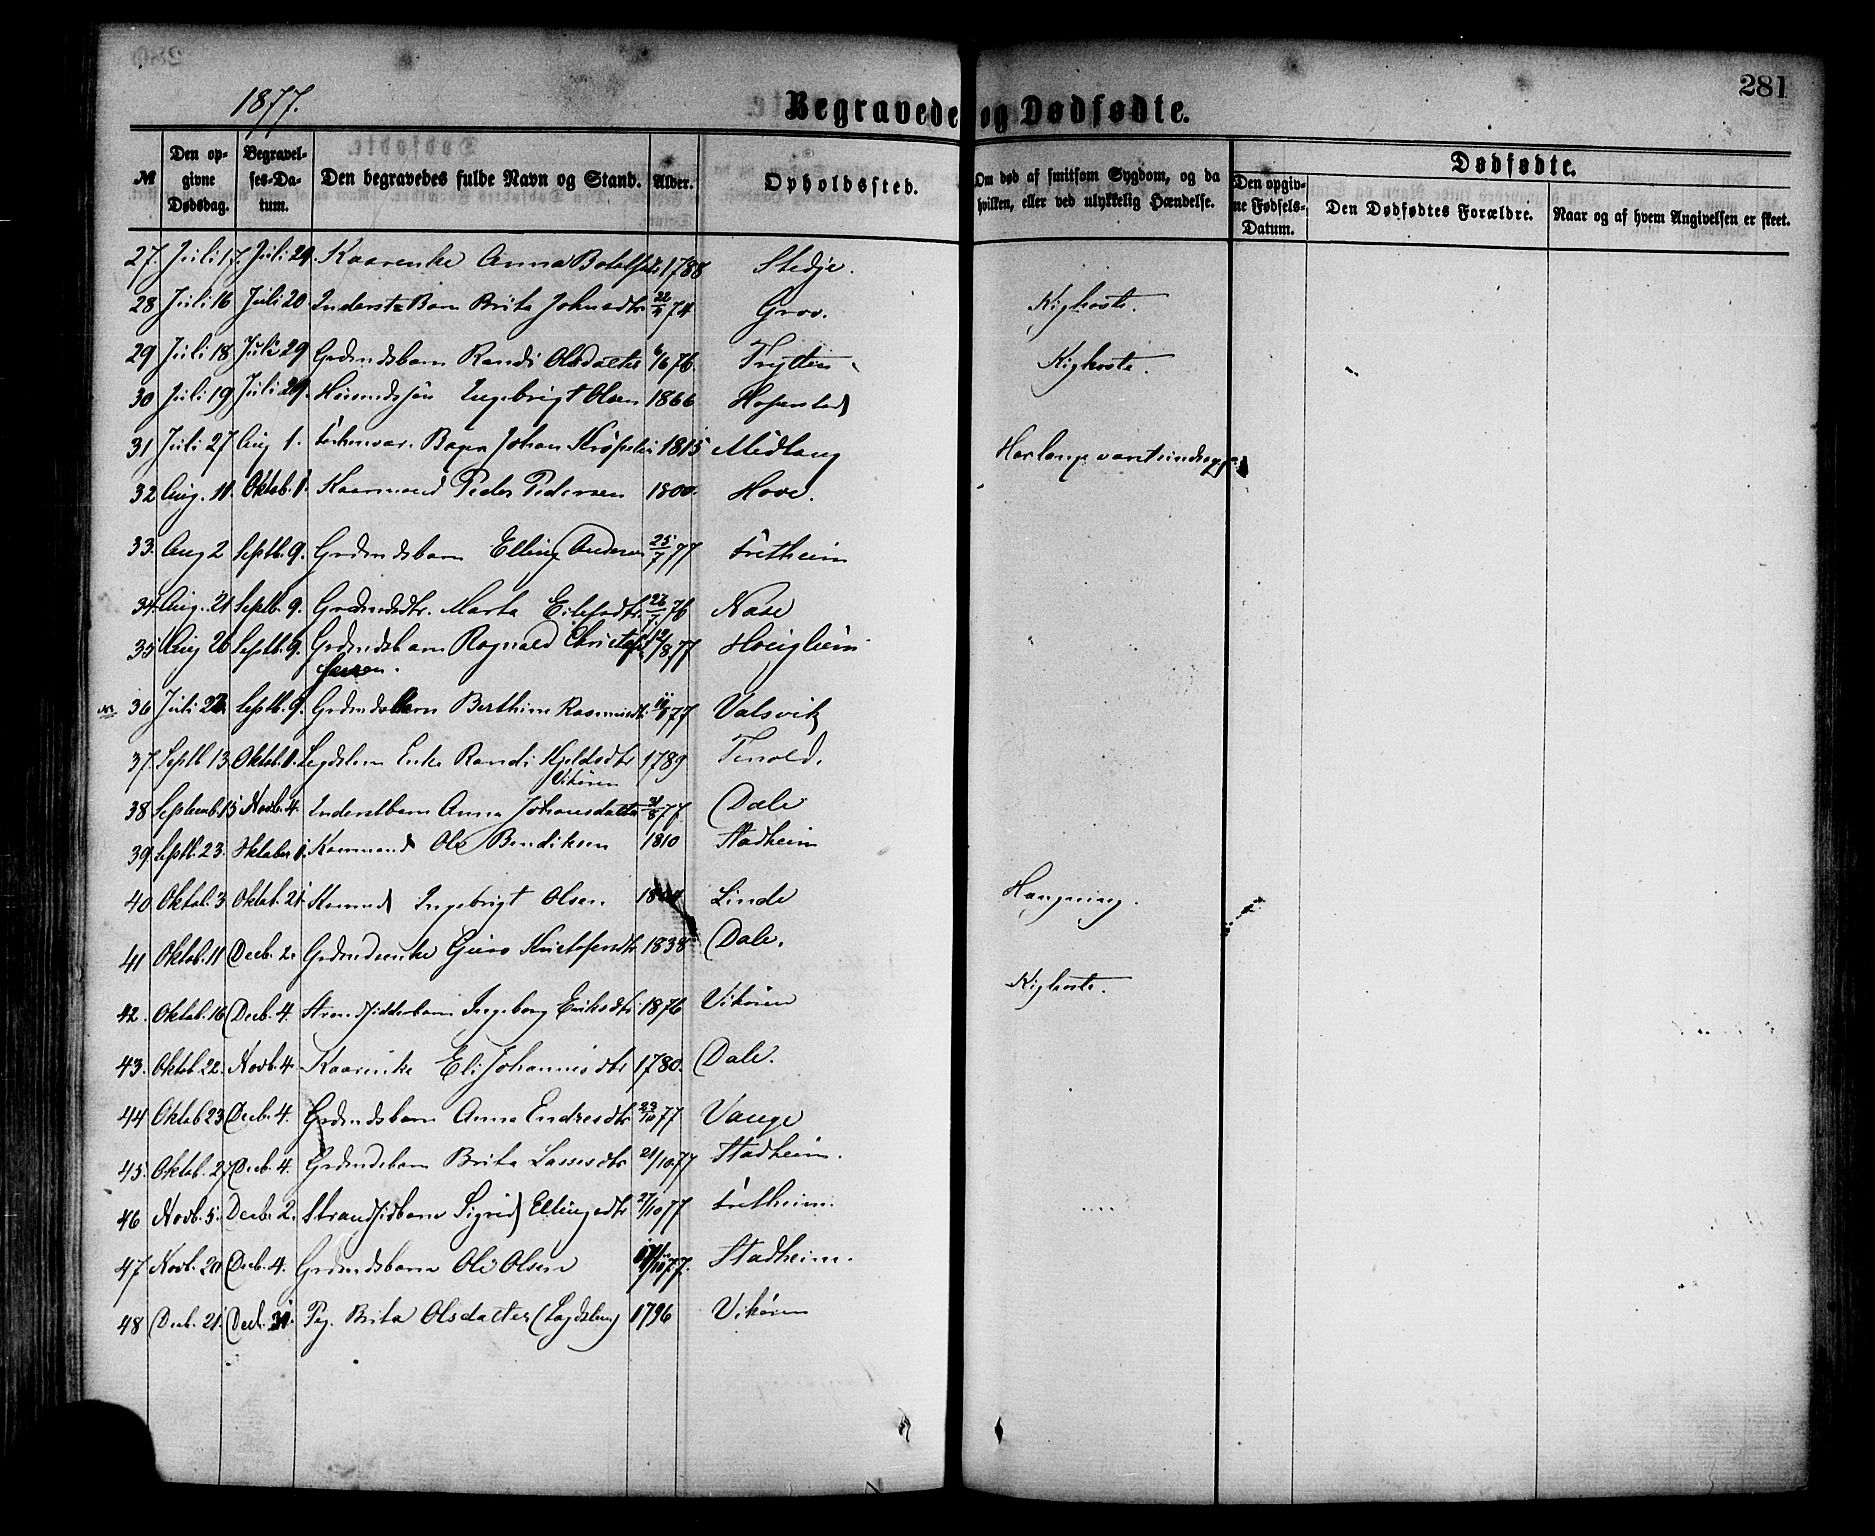 281
1877.
Begravede og Dødfødte.
№ Den opgivne Dødsdag. Begravelses-Datum. Den begravedes fulde Navn og Stand. Alder. Opholdssted. Om død af smitsom Sygdom, og da hvilken, eller ved ulykkelig Hændelse. Dødfødte.
Den opgivne Fødsels-Datum. Den Dødfødtes Forældre. Naar og af hvem Angivelsen er skeet.
27. Juli 17. Juli 29. Kaarenke Anna 1788 Stedje.
28 Juli 16 Juli 20. Inderste Barn Brita Johnsdtr 74 Grov. Kighoste.
29 Juli 18 Juli 29 Grdmdsbarn Randi Olsdatter 6/6 76. Trytten Kighoste.
30 Juli 19 Juli 29. Huusmdssøn Ingebrigt Olsen 1866 Hopsted
31 Juli 27 Aug 1. Johan 1815 Midlang Har længe været
32 Aug. 11. Oktob. 1. Kaarmand Peder Pedersen 1800. Hove.
33. Aug 2 Septb. 9. Grdmdsbarn Elling Andersen 25/7 77 Fretheim
34. Aug. 21 Septb. 9. Grdmdsdtr. Marta 26/7 76 Nase
35 Aug 26 Septb. 9. Grdmdsbarn Ragnald Christof 12/8 77 Houglum
fersen.
36 Juli 22. Septb. 9. Grdmdsbarn Berthine Rasmusdtr. 77 Valsvik
37. Septb 13. Oktob. 1. Legdslem Enke Randi Kjeldsdtr 1789 Tenold.
Vikøren
38 Septemb 15 Novb. 4. Inderstbarn Anna Johansdatter 31/8 77. Dale
39. Septb. 23. Oktober 1. Kaarmand Ole Bendiksen 1810 Stadheim
40. Oktob. 3 Oktob. 21. Ingebrigt Olsen Linde Hængning.
41 Oktob. 11 Decb. 2. Grdmdsenke Guro Kristofersdtr 1838 Dale.
42. Oktob. 16 Decb. 4. Strandsidderbarn Ingeborg Eriksdtr 1876 Vikøren Kighoste.
43. Oktob. 22. Novb. 4. Kaarenke Eli Johannisdtr 1780. Dale.
44 Oktob 23 Decb. 4. Grdmdsbarn Anna Endresdtr. 23/10 77 Vange
45. Oktob. 27 Decb. 4. Grdmdsbarn Brita Lassesdtr 21/10 77 Stadheim.
46 Novb. 5. Decb. 2. Strandsidbarn Sigrid Ellingsdtr 27/10 77 Fretheim.
47 Novb. 20 Decb. 4. Grdmdsbarn Ole Olsen 77. Stadheim.
48 Decb. 21. Decb. 31. Pig. Brita Olsdatter (Lægdslem) 1796 Vikøren